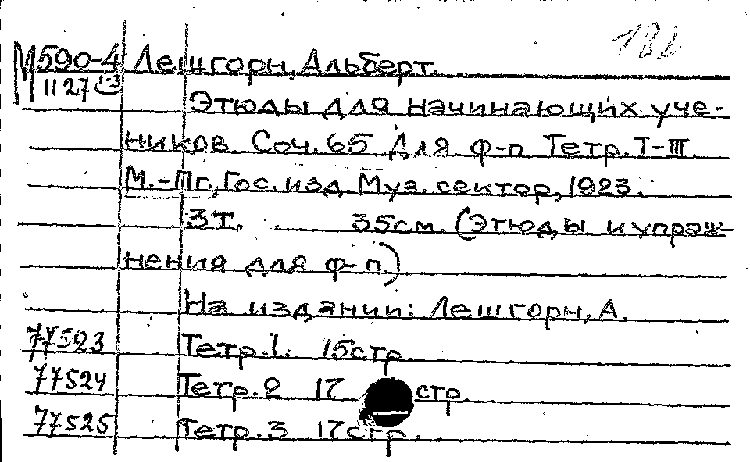 М590-4 Лешгорн, Альберт.
1127
Этюды для начинающих уче-
ников Соч. 65 Для ф-п Тетр. I-III
М.-Пг, Гос. изд Муз. сектор, 1923.
3т. 35см. (Этюды и упраж-
нения для ф-п.)
На издании: Лешгорн, А.
77523 Тетр. 1. 15стр.
77524 Тетр. 2 17 стр.
77525 Тетр. 3 17стр.